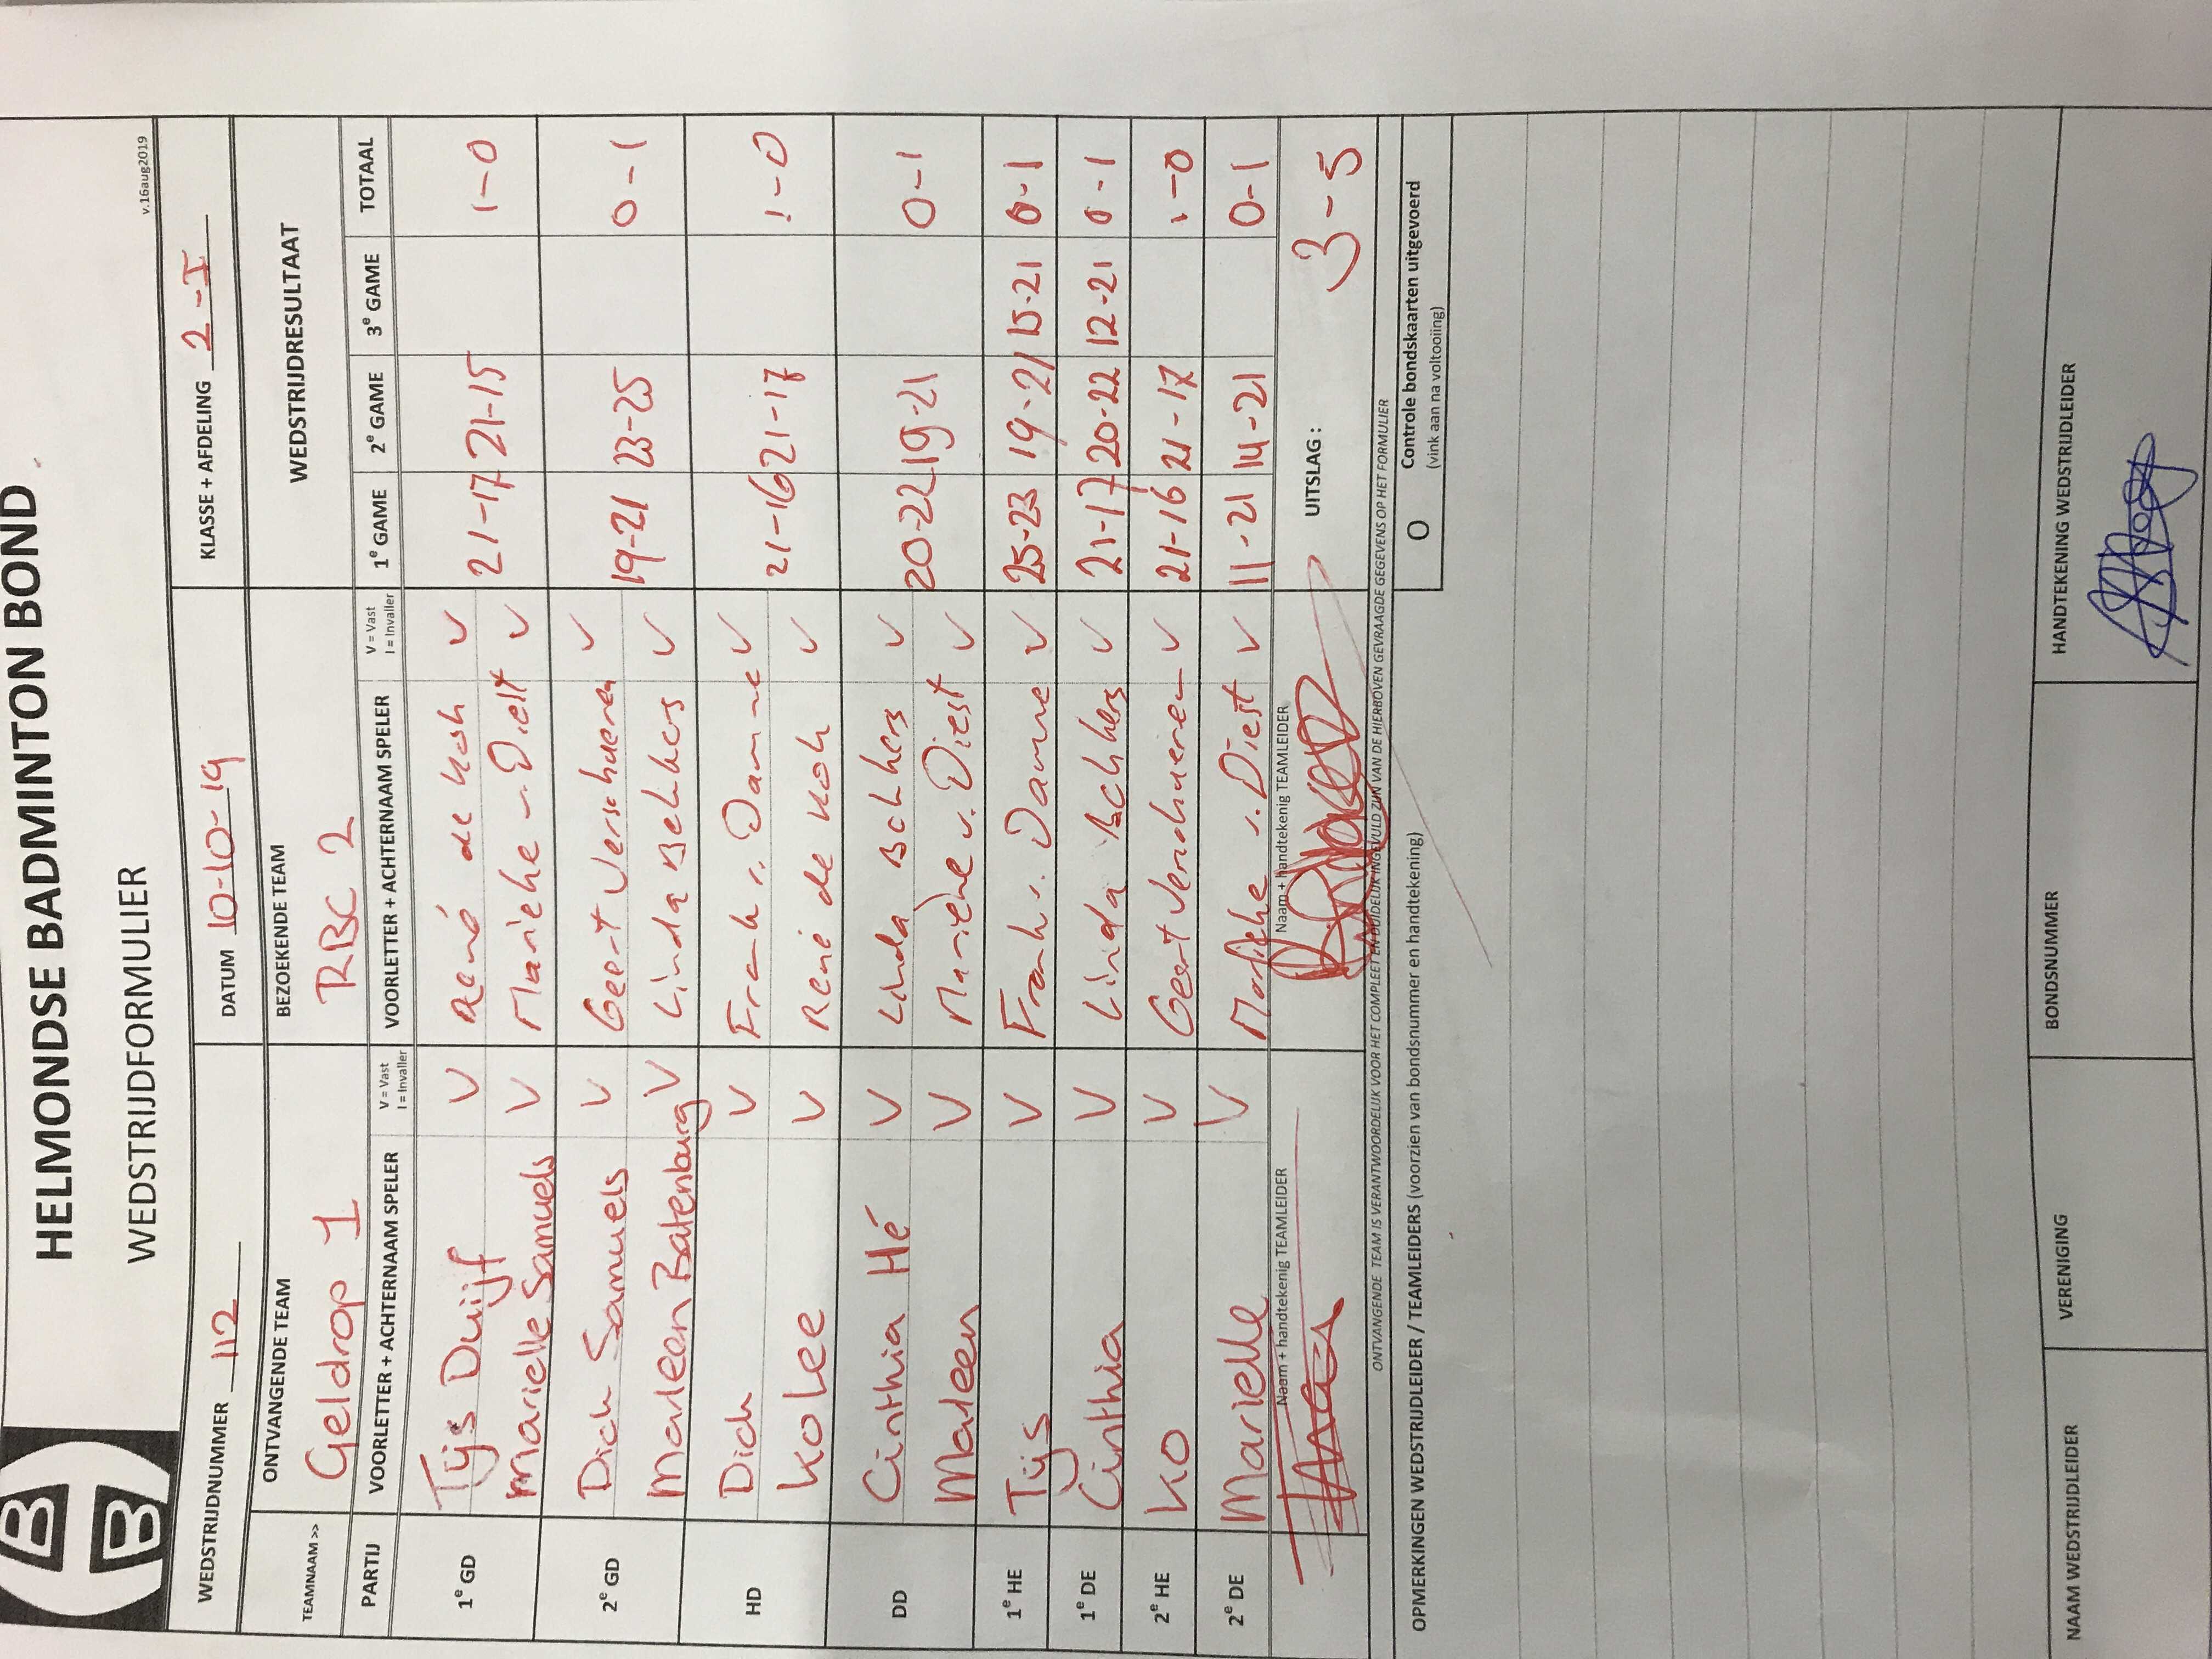 HELMONDSE BADMINTON BOND
WEDSTRIJDFORMULIER
v.16aug2019
WEDSTRIJDNUMMER 112 DATUM 10-10-19 KLASSE + AFDELING 2-I
TEAMNAAM >> ONTVANGENDE TEAM BEZOEKENDE TEAM WEDSTRIJDRESULTAAT
Geldrop 1 RBC 2
PARTIJ VOORLETTER + ACHTERNAAM SPELER V = Vast I = Invaller VOORLETTER + ACHTERNAAM SPELER V = Vast I = Invaller 1e GAME 2e GAME 3e GAME TOTAAL
1e GD Tijs Duijf V René de Koh V 21-17 21-15 1-0
Marielle Samuels V Marieke v. Diest V
2e GD Dick Samuels V Geert Verschueren V 19-21 23-25 0-1
Marleen Batenburg V Linda Bekkers V
HD Dick V Frank v. Damme V 21-16 21-17 1-0
Ko Lee V René de Koh V
DD Cinthia Hé V Linda Bekkers V 20-22 19-21 0-1
Marleen V Marieke v. Diest V
1e HE Tijs V Frank v. Damme V 25-23 19-21 15-21 0-1
1e DE Cinthia V Linda Bekkers V 21-17 20-22 12-21 0-1
2e HE Ko V Geert Verschueren V 21-16 21-17 1-0
2e DE Marielle V Marieke v. Diest V 11-21 14-21 0-1
Naam + handtekenig TEAMLEIDER Naam + handtekenig TEAMLEIDER UITSLAG : 3-5
ONTVANGENDE TEAM IS VERANTWOORDELIJK VOOR HET COMPLEET EN DUIDELIJK INGEVULD ZIJN VAN DE HIERBOVEN GEVRAAGDE GEGEVENS OP HET FORMULIER
OPMERKINGEN WEDSTRIJDLEIDER / TEAMLEIDERS (voorzien van bondsnummer en handtekening)
O Controle bondskaarten uitgevoerd
(vink aan na voltooiing)
NAAM WEDSTRIJDLEIDER VERENIGING BONDSNUMMER HANDTEKENING WEDSTRIJDLEIDER